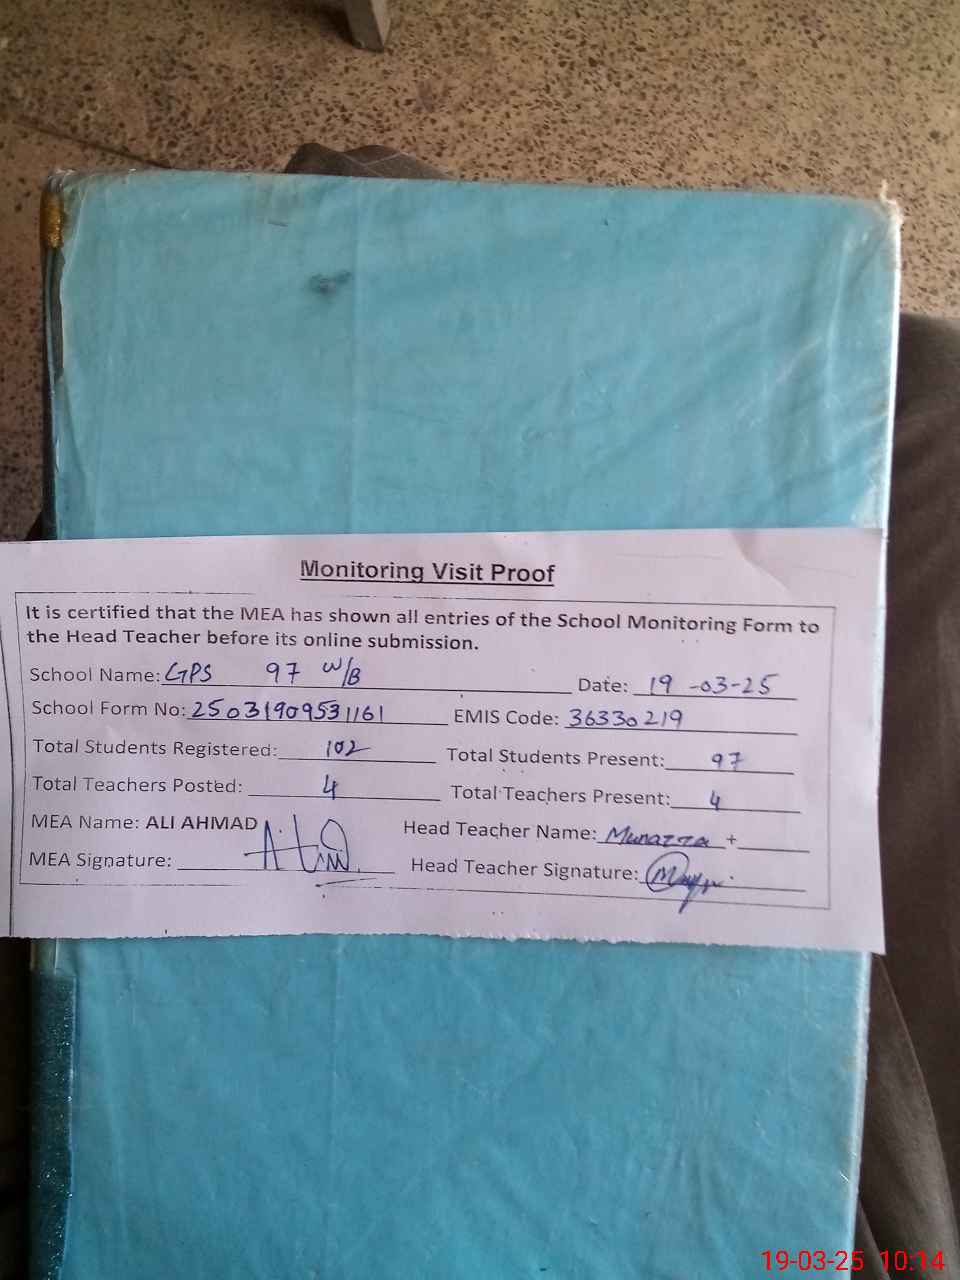 Monitoring Visit Proof
It is certified that the MEA has shown all entries of the School Monitoring Form to
the Head Teacher before its online submission.
School Name: GPS 97 W/B Date: 19-03-25
School Form No: 25031909531161 EMIS Code: 36330219
Total Students Registered: 102 Total Students Present: 97
Total Teachers Posted: 4 Total Teachers Present: 4
MEA Name: ALI AHMAD Head Teacher Name: Munazza +
MEA Signature: Head Teacher Signature:
19-03-25 10:14